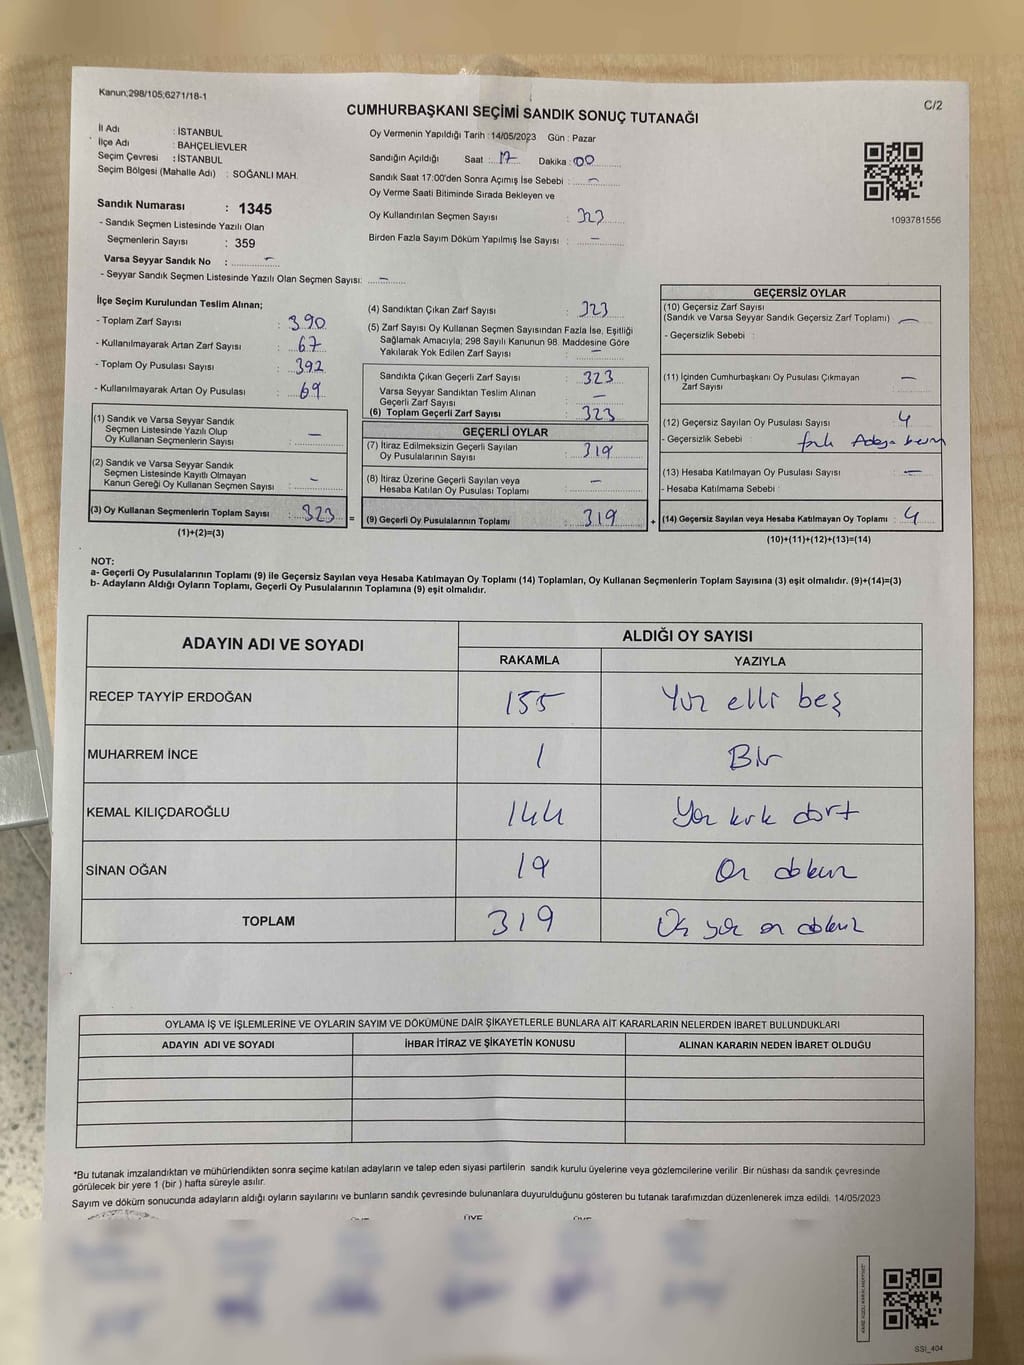 Kanun;298/105;6271/18-1
C/2
CUMHURBAŞKANI SEÇİMİ SANDIK SONUÇ TUTANAĞI
İl Adı : İSTANBUL
İlçe Adı : BAHÇELİEVLER
Seçim Çevresi : İSTANBUL
Seçim Bölgesi (Mahalle Adı) : SOĞANLI MAH.
Sandık Numarası : 1345
- Sandık Seçmen Listesinde Yazılı Olan
Seçmenlerin Sayısı : 359
Varsa Seyyar Sandık No : –
- Seyyar Sandık Seçmen Listesinde Yazılı Olan Seçmen Sayısı: –
Oy Vermenin Yapıldığı Tarih : 14/05/2023 Gün : Pazar
Sandığın Açıldığı Saat : 17 Dakika : 00
Sandık Saat 17:00'den Sonra Açımış İse Sebebi : –
Oy Verme Saati Bitiminde Sırada Bekleyen ve
Oy Kullandırılan Seçmen Sayısı : 323
Birden Fazla Sayım Döküm Yapılmış İse Sayısı : –
1093781556
İlçe Seçim Kurulundan Teslim Alınan;
- Toplam Zarf Sayısı : 390
- Kullanılmayarak Artan Zarf Sayısı : 67
- Toplam Oy Pusulası Sayısı : 392
- Kullanılmayarak Artan Oy Pusulası : 69
(1) Sandık ve Varsa Seyyar Sandık
Seçmen Listesinde Yazılı Olup
Oy Kullanan Seçmenlerin Sayısı : –
(2) Sandık ve Varsa Seyyar Sandık
Seçmen Listesinde Kayıtlı Olmayan
Kanun Gereği Oy Kullanan Seçmen Sayısı : –
(3) Oy Kullanan Seçmenlerin Toplam Sayısı : 323 =
(1)+(2)=(3)
(4) Sandıktan Çıkan Zarf Sayısı : 323
(5) Zarf Sayısı Oy Kullanan Seçmen Sayısından Fazla İse, Eşitliği
Sağlamak Amacıyla; 298 Sayılı Kanunun 98. Maddesine Göre
Yakılarak Yok Edilen Zarf Sayısı : –
Sandıkta Çıkan Geçerli Zarf Sayısı : 323
Varsa Seyyar Sandıktan Teslim Alınan
Geçerli Zarf Sayısı : –
(6) Toplam Geçerli Zarf Sayısı : 323
GEÇERLİ OYLAR
(7) İtiraz Edilmeksizin Geçerli Sayılan
Oy Pusulalarının Sayısı : 319
(8) İtiraz Üzerine Geçerli Sayılan veya
Hesaba Katılan Oy Pusulası Toplamı : –
(9) Geçerli Oy Pusulalarının Toplamı : 319 +
GEÇERSİZ OYLAR
(10) Geçersiz Zarf Sayısı
(Sandık ve Varsa Seyyar Sandık Geçersiz Zarf Toplamı) : –
- Geçersizlik Sebebi :
(11) İçinden Cumhurbaşkanı Oy Pusulası Çıkmayan
Zarf Sayısı : –
(12) Geçersiz Sayılan Oy Pusulası Sayısı : 4
- Geçersizlik Sebebi :
(13) Hesaba Katılmayan Oy Pusulası Sayısı : –
- Hesaba Katılmama Sebebi :
(14) Geçersiz Sayılan veya Hesaba Katılmayan Oy Toplamı : 4
(10)+(11)+(12)+(13)=(14)
NOT:
a- Geçerli Oy Pusulalarının Toplamı (9) ile Geçersiz Sayılan veya Hesaba Katılmayan Oy Toplamı (14) Toplamları, Oy Kullanan Seçmenlerin Toplam Sayısına (3) eşit olmalıdır. (9)+(14)=(3)
b- Adayların Aldığı Oyların Toplamı, Geçerli Oy Pusulalarının Toplamına (9) eşit olmalıdır.
ADAYIN ADI VE SOYADI
ALDIĞI OY SAYISI
RAKAMLA YAZIYLA
RECEP TAYYİP ERDOĞAN 155 Yüz elli beş
MUHARREM İNCE 1 Bir
KEMAL KILIÇDAROĞLU 144 Yüz kırk dört
SİNAN OĞAN 19 On dokuz
TOPLAM 319 Üç yüz on dokuz
OYLAMA İŞ VE İŞLEMLERİNE VE OYLARIN SAYIM VE DÖKÜMÜNE DAİR ŞİKAYETLERLE BUNLARA AİT KARARLARIN NELERDEN İBARET BULUNDUKLARI
ADAYIN ADI VE SOYADI İHBAR İTİRAZ VE ŞİKAYETİN KONUSU ALINAN KARARIN NEDEN İBARET OLDUĞU
*Bu tutanak imzalandıktan ve mühürlendikten sonra seçime katılan adayların ve talep eden siyasi partilerin sandık kurulu üyelerine veya gözlemcilerine verilir. Bir nüshası da sandık çevresinde
görülecek bir yere 1 (bir ) hafta süreyle asılır.
Sayım ve döküm sonucunda adayların aldığı oyların sayılarını ve bunların sandık çevresinde bulunanlara duyurulduğunu gösteren bu tutanak tarafımızdan düzenlenerek imza edildi. 14/05/2023
ÜYE ÜYE ÜYE
SSI_404